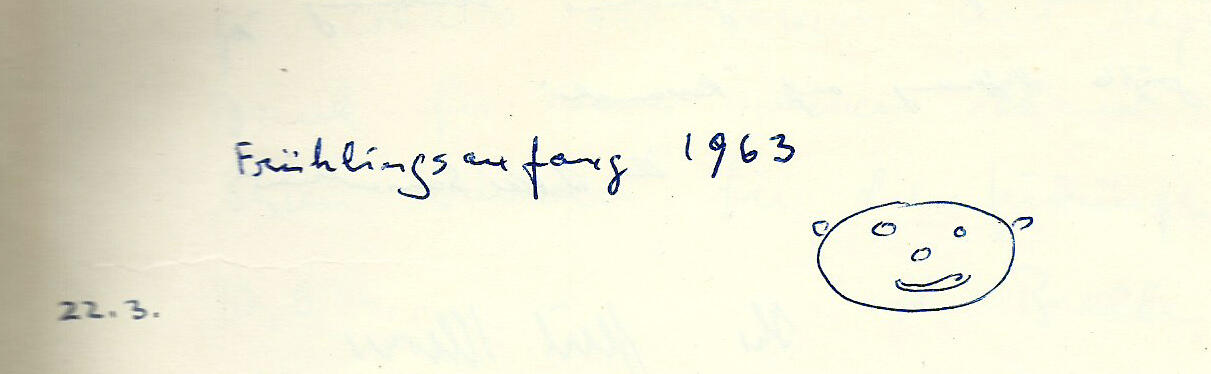 Frühlingsanfang 1963
22.3.